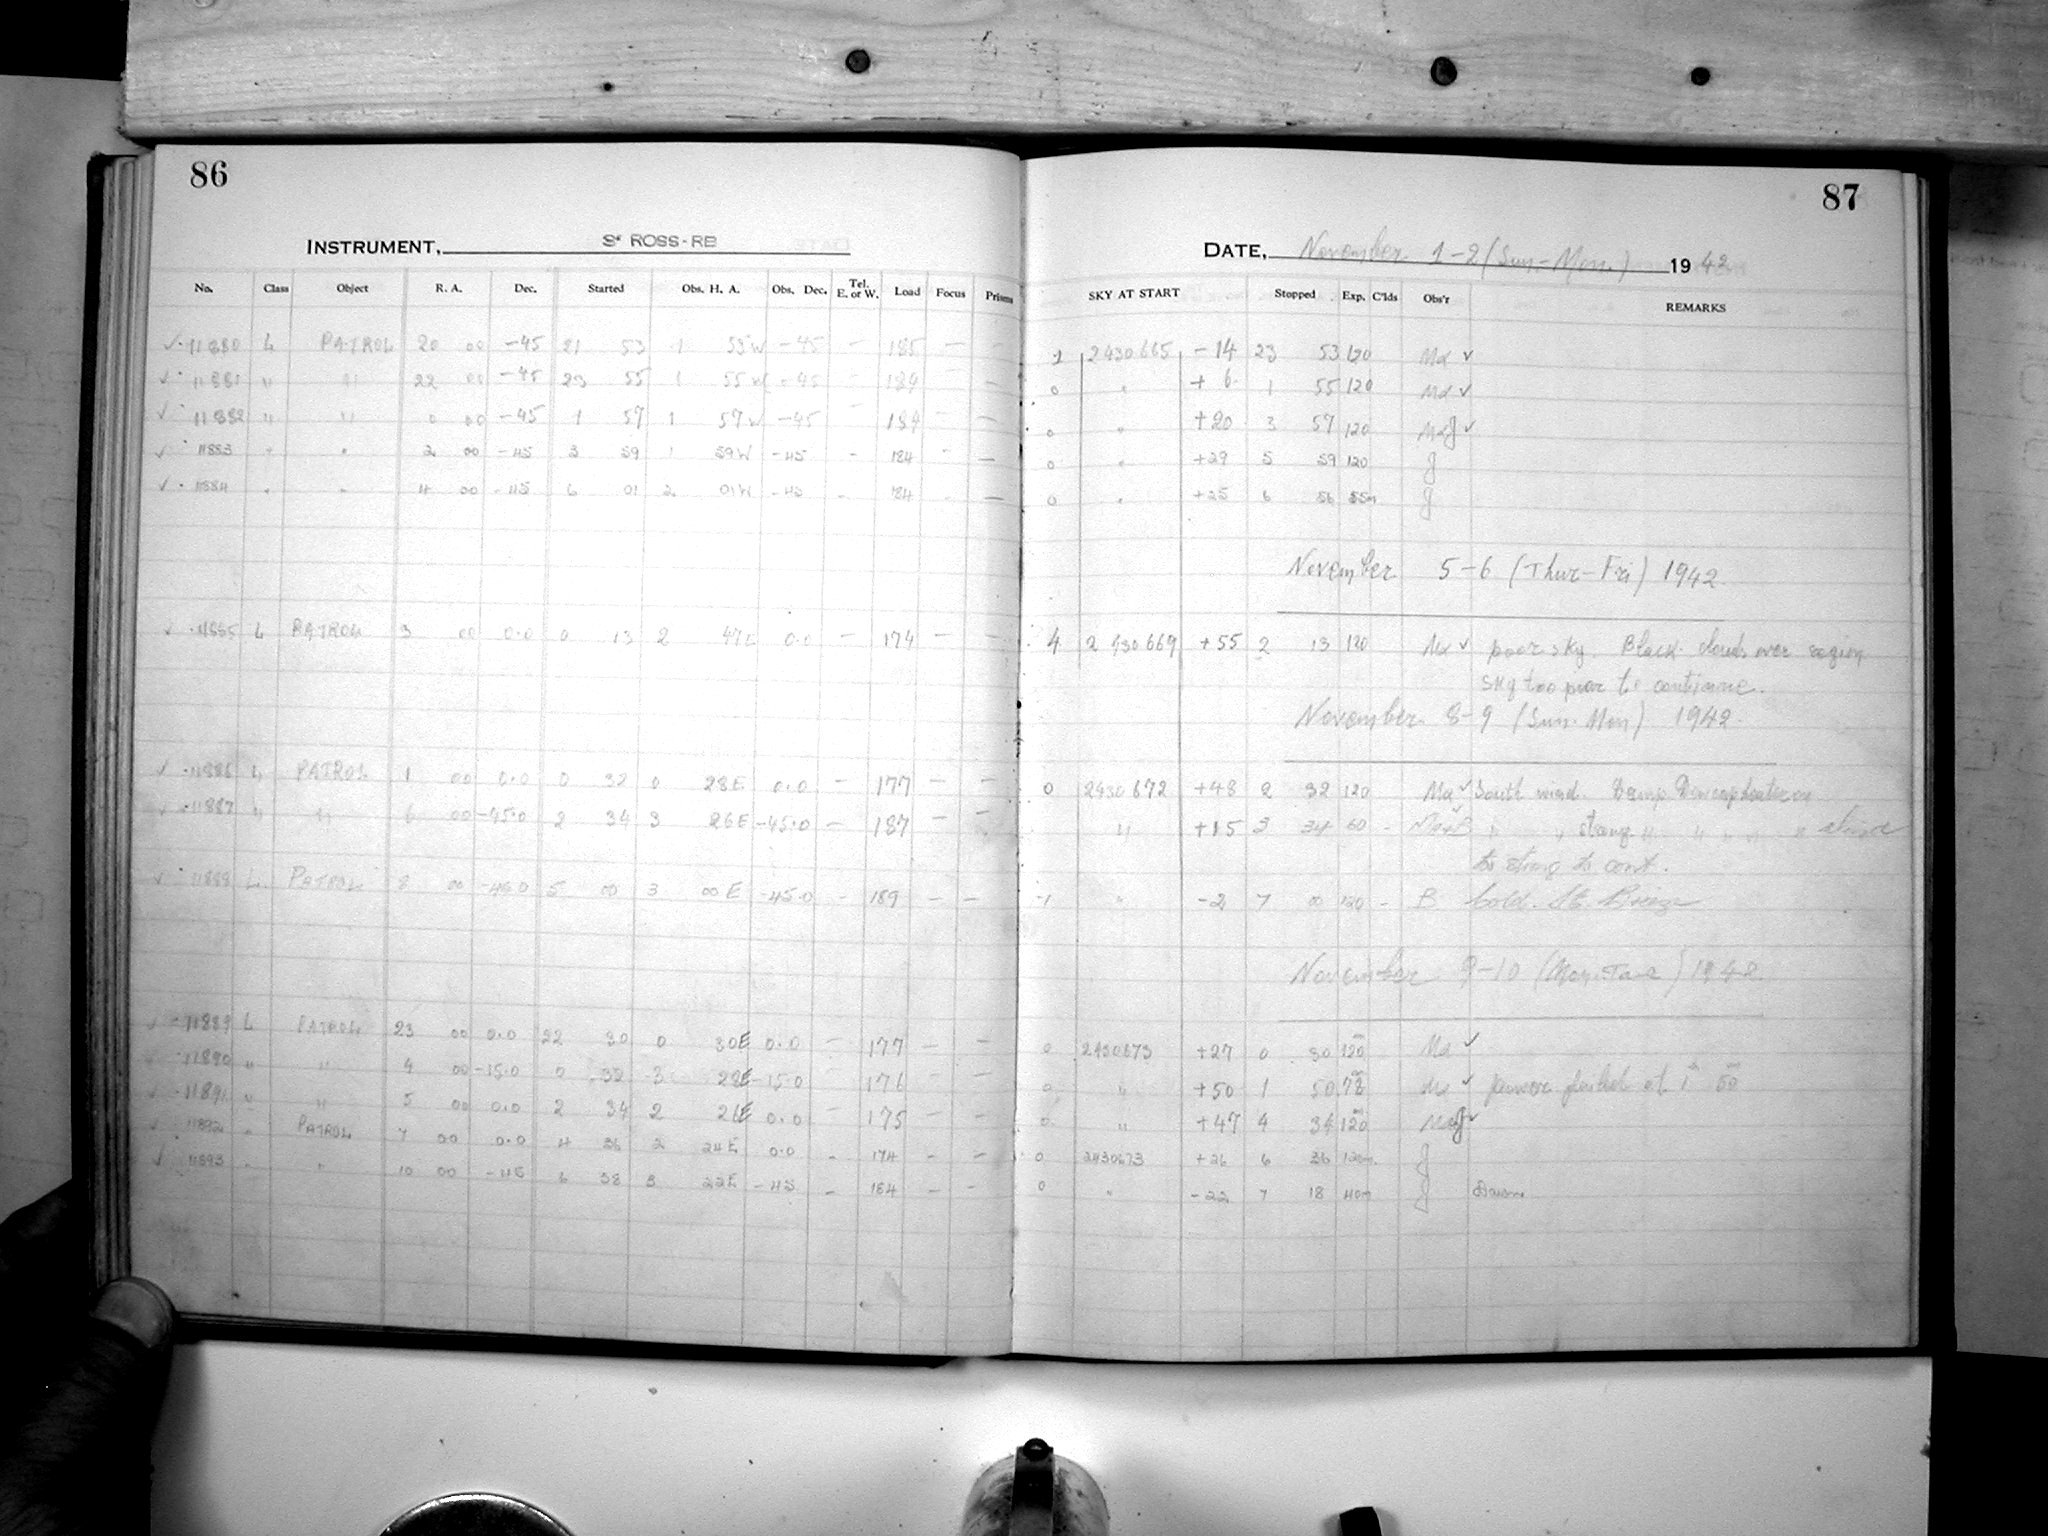 86
INSTRUMENT, 3" ROSS-RB
No. Class Object R. A. Dec. Started Obs. H. A. Obs. Dec. Tel. E. or W. Load Focus Prisms
✓ 11880 L PATROL 20 00 -45 21 53 1 53W -45 — 185 — —
✓ 11881 " " 22 00 -45 23 55 1 55W -45 — 184 — —
✓ 11882 " " 0 00 -45 1 57 1 57W -45 — 184 — —
✓ 11883 " " 2 00 -45 3 59 1 59W -45 — 184 - —
✓ 11884 " " 4 00 -45 6 01 2 01W -45 - 184 - —
✓ 11885 L PATROL 3 00 0.0 0 13 2 47E 0.0 — 174 — —
✓ 11886 L PATROL 1 00 0.0 0 32 0 28E 0.0 — 177 — —
✓ 11887 " " 6 00 -45.0 2 34 3 26E -45.0 — 187 — —
✓ 11888 L PATROL 8 00 -45.0 5 00 3 00E -45.0 - 189 — —
✓ 11889 L PATROL 23 00 0.0 22 30 0 30E 0.0 — 177 — —
11890 " " 4 00 -15.0 0 32 3 28E -15.0 176 — —
✓ 11891 " " 5 00 0.0 2 34 2 26E 0.0 — 175 — —
✓ 11892 " PATROL 7 00 0.0 4 36 2 24E 0.0 - 174 — —
✓ 11893 " " 10 00 -45 6 38 3 22E -45 - 184 — —
87
DATE, November 1-2 (Sun.-Mon.) 1942
SKY AT START Stopped Exp. C'lds Obs'r REMARKS
1 2430665 -14 23 53 120 Ma ✓
0 " +6 1 55 120 Ma ✓
0 " +20 3 57 120 Ma J ✓
0 " +29 5 59 120 J
0 " +25 6 56 55m J
November 5-6 (Thur-Fri) 1942
4 2430669 +55 2 13 120 Ma ✓ poor sky. Black clouds over region
Sky too poor to continue.
November 8-9 (Sun. Mon) 1942
0 2430672 +48 2 32 120 Ma ✓ South wind. Damp
" +15 3 34 60 - Ma+B " " strong " " " "
to strong to cont.
" -2 7 00 120 - B Cold. St. Breeze
November 9-10 (Mon-Tue) 1942
0 2430673 +27 0 30 120 Ma ✓
0 " +50 1 50 78 Ma ✓ power failed at 1h 50
0 " +47 4 34 120 Ma J ✓
0 2430673 +26 6 36 120m J
0 " -22 7 18 40m J Dawn